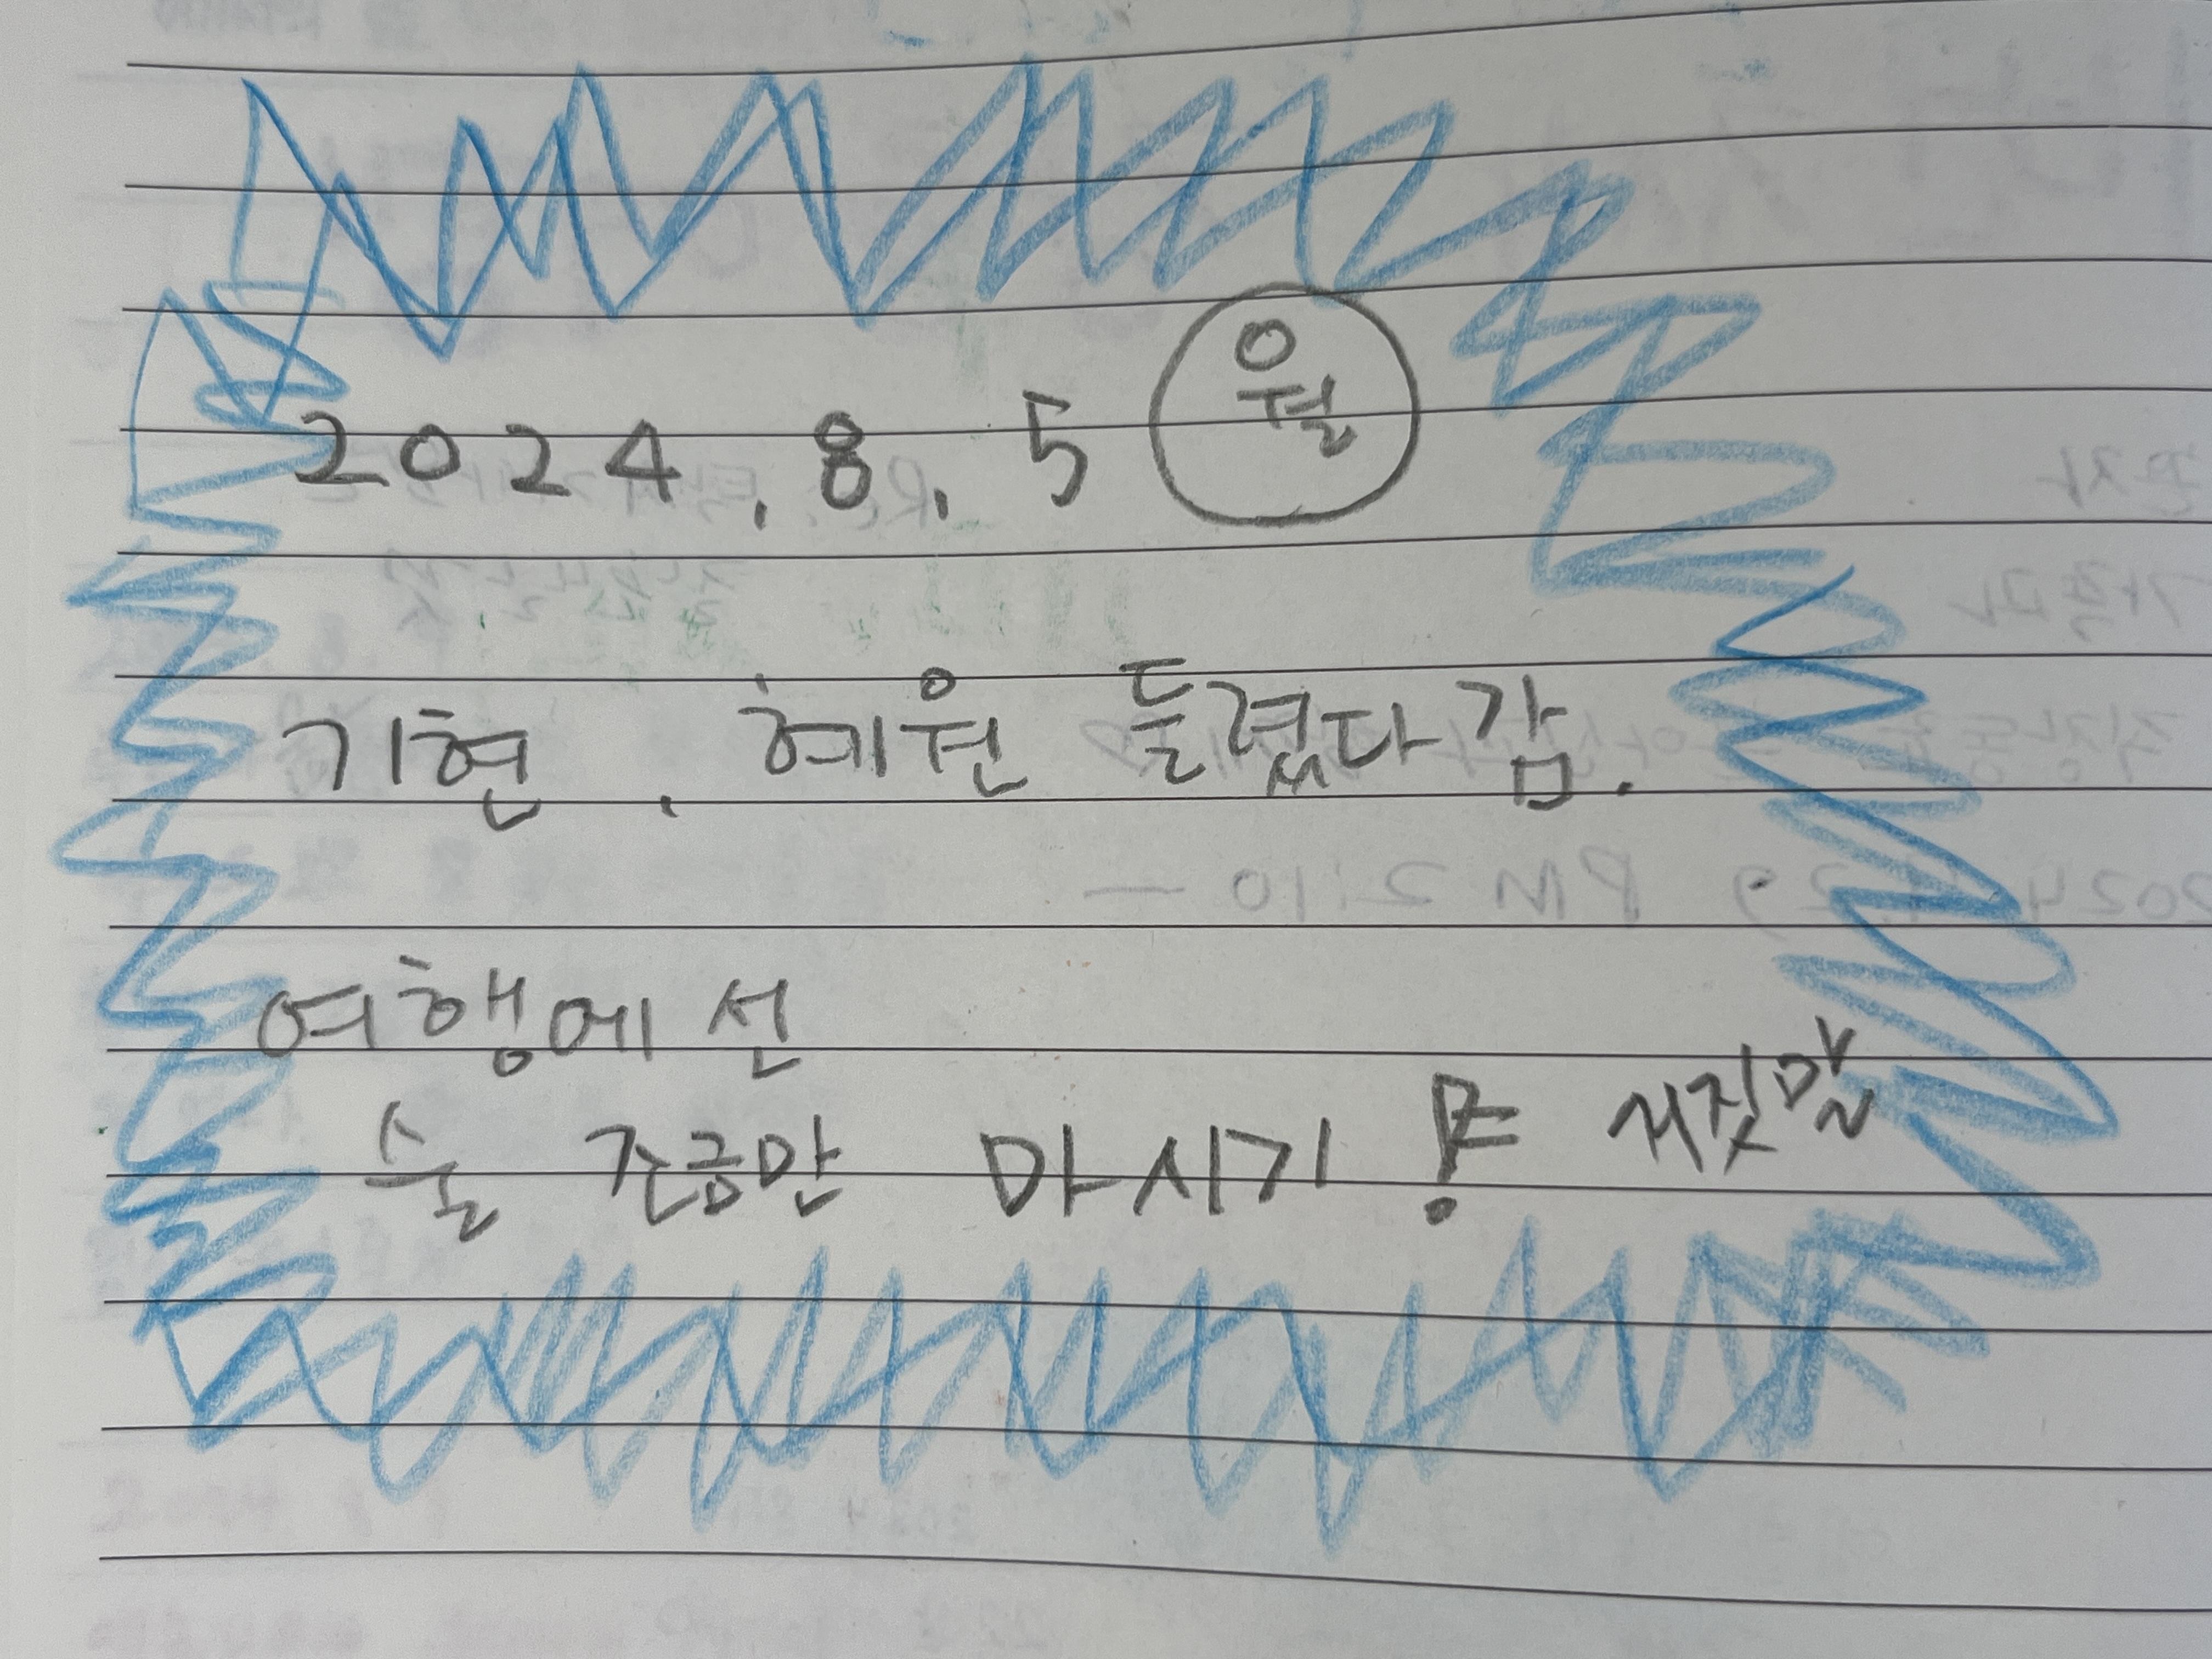 2024. 8. 5 월
기현, 혜원 들렸다감.
여행에선
술 조금만 마시기! 거짓말